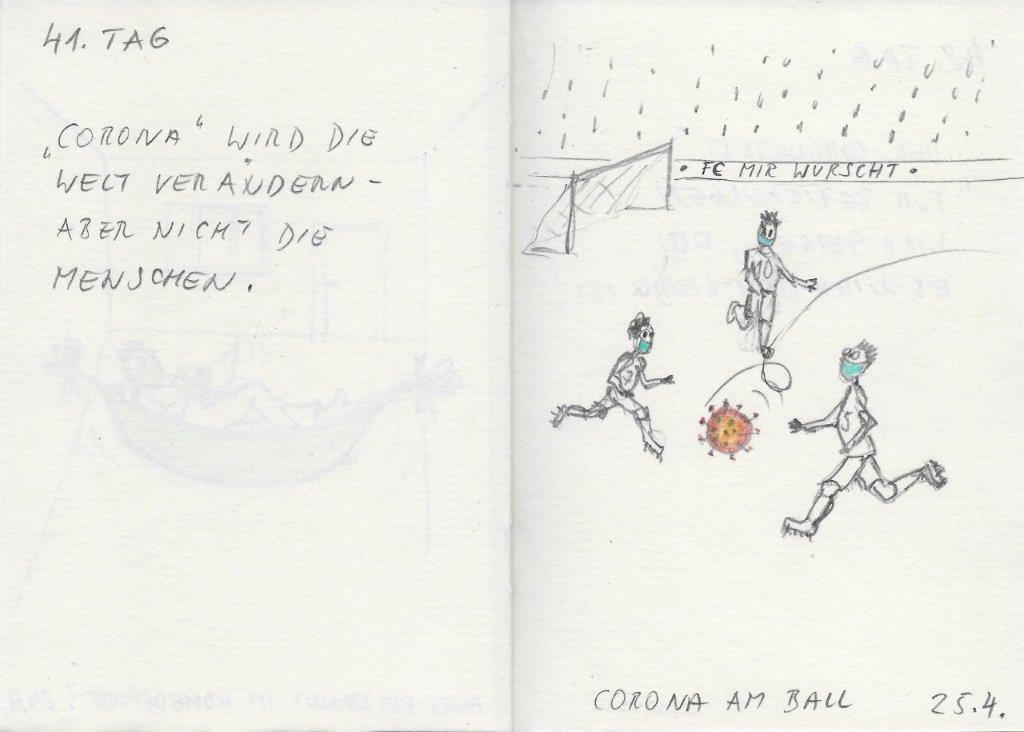 41. TAG
„CORONA“ WIRD DIE
WELT VERÄNDERN -
ABER NICHT DIE
MENSCHEN.
• FC MIR WURSCHT •
10
CORONA AM BALL 25.4.